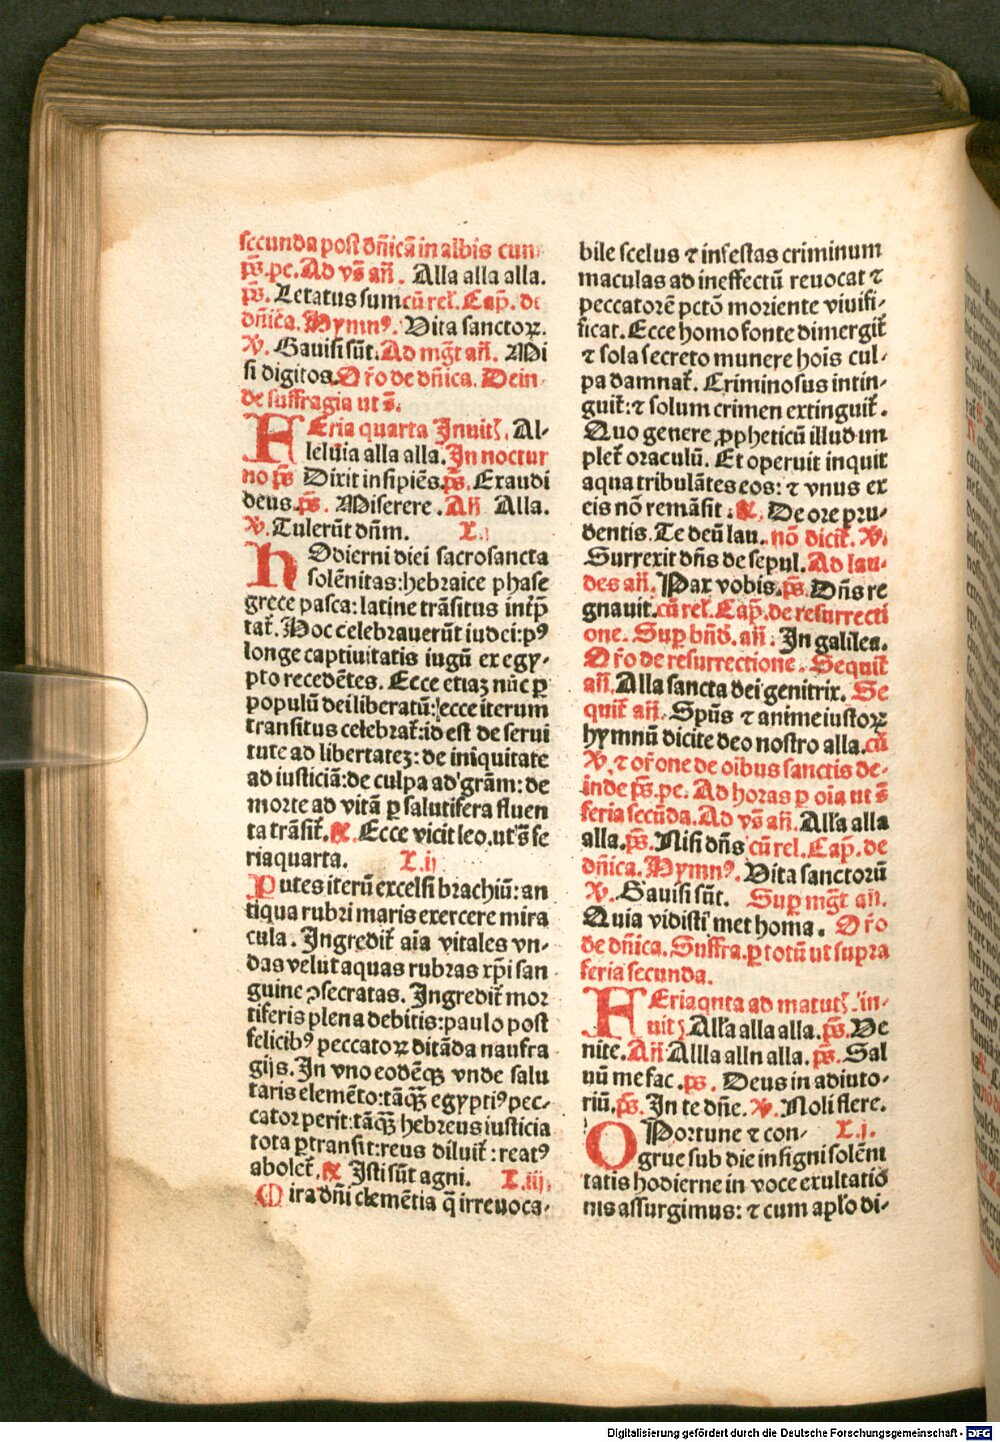 secunda post dn̄icā in albis cum
ps̄. pc. Ad vs̄ an̄. Alla alla alla.
ps̄. Letatus sum cū rel̄. Cap̄. de
dn̄ica. Hymnꝰ. Vita sanctoꝝ.
℣. Gauisi sūt. Ad mḡt an̄. Mi
si digitos. Or̄o de dn̄ica. Dein⸗
de suffragia ut s̄.
FEria quarta Inuitꝫ. Al⸗
leluia alla alla. In noctur
no ps̄ Dixit insipiēs. ps̄. Exaudi
deus. ps̄. Miserere. An̄ Alla.
℣. Tulerūt dn̄m. L.i
HOdierni diei sacrosancta
solēnitas: hebraice phase
grece pasca: latine trāsitus int̄p̄
tat̄. Hoc celebrauerūt iudei: pꝰ
longe captiuitatis iugū ex egy⸗
pto recedētes. Ecce etiaꝫ nūc ꝑ
populū dei liberatū: ecce iterum
transitus celebrat̄: id est de serui
tute ad libertateꝫ: de iniquitate
ad iusticiā: de culpa ad grām: de
morte ad vitā ꝑ salutifera fluen
ta trāsit̄. ℟. Ecce vicit leo. ut s̄ fe
ria quarta. L.ij
Putes iterū excelsi brachiū: an
tiqua rubri maris exercere mira
cula. Ingredit̄ aīa vitales vn⸗
das velut aquas rubras xp̄i san
guine ꝯsecratas. Ingredit̄ mor
tiferis plena debitis: paulo post
felicibꝰ peccatoꝝ ditāda naufra
gijs. In vno eodēqꝫ vnde salu
taris elemēto: tāqꝫ̄ egyptiꝰ pec⸗
cator perit: tāqꝫ̄ hebreus iusticia
tota ꝑtransit: reus diluit̄: reatꝰ
abolet̄. ℟ Isti sūt agni. L.iij.
Mira dn̄i clemētia q̄ irreuoca⸗
bile scelus ⁊ infestas criminum
maculas ad ineffectū reuocat ⁊
peccatorē pctō moriente viuifi⸗
ficat. Ecce homo fonte dimergit̄
⁊ sola secreto munere hoīs cul⸗
pa damnat̄. Criminosus intin⸗
guit̄: ⁊ solum crimen extinguit̄.
Quo genere ꝓpheticū illud im
plet̄ oraculū. Et operuit inquit
aqua tribulātes eos: ⁊ vnus ex
eis nō remāsit. ℟. De ore pru⸗
dentis. Te deū lau. nō dicit̄. ℣.
Surrexit dn̄s de sepul. Ad lau⸗
des an̄. Pax vobis. ps̄. Dn̄s re
gnauit. cū rel̄. Cap̄. de resurrecti
one. Suꝑ bn̄d̄. an̄. In galilea.
Or̄o de resurrectione. Sequit̄
an̄. Alla sancta dei genitrix. Se
quit̄ an̄. Spūs ⁊ anime iustoꝝ
hymnū dicite deo nostro alla. cū
℣. ⁊ or̄one de oībus sanctis de⸗
inde ps̄. pc. Ad horas ꝑ oīa ut s̄
feria secūda. Ad vs̄ an̄. Alla alla
alla. ps̄. Nisi dn̄s cū rel. Cap̄. de
dn̄ica. Hymnꝰ. Vita sanctorū
℣. Gauisi sūt. Suꝑ mḡt an̄.
Quia vidisti met homa. Or̄o
de dn̄ica. Suffra. ꝑ totū ut supra
feria secunda.
FEria qnta ad matutꝫ. in⸗
uitꝫ. Alla alla alla. ps̄. Ve
nite. An̄ Allla alln alla. ps̄. Sal
uū me fac. ps̄. Deus in adiuto⸗
riū. ps̄. In te dn̄e. ℣. Noli flere.
OPortune ⁊ con⸗ L.j.
grue sub die insigni solēni
tatis hodierne in voce exultatiō
nis assurgimus: ⁊ cum apl̄o di⸗
Digitalisierung gefördert durch die Deutsche Forschungsgemeinschaft - DFG